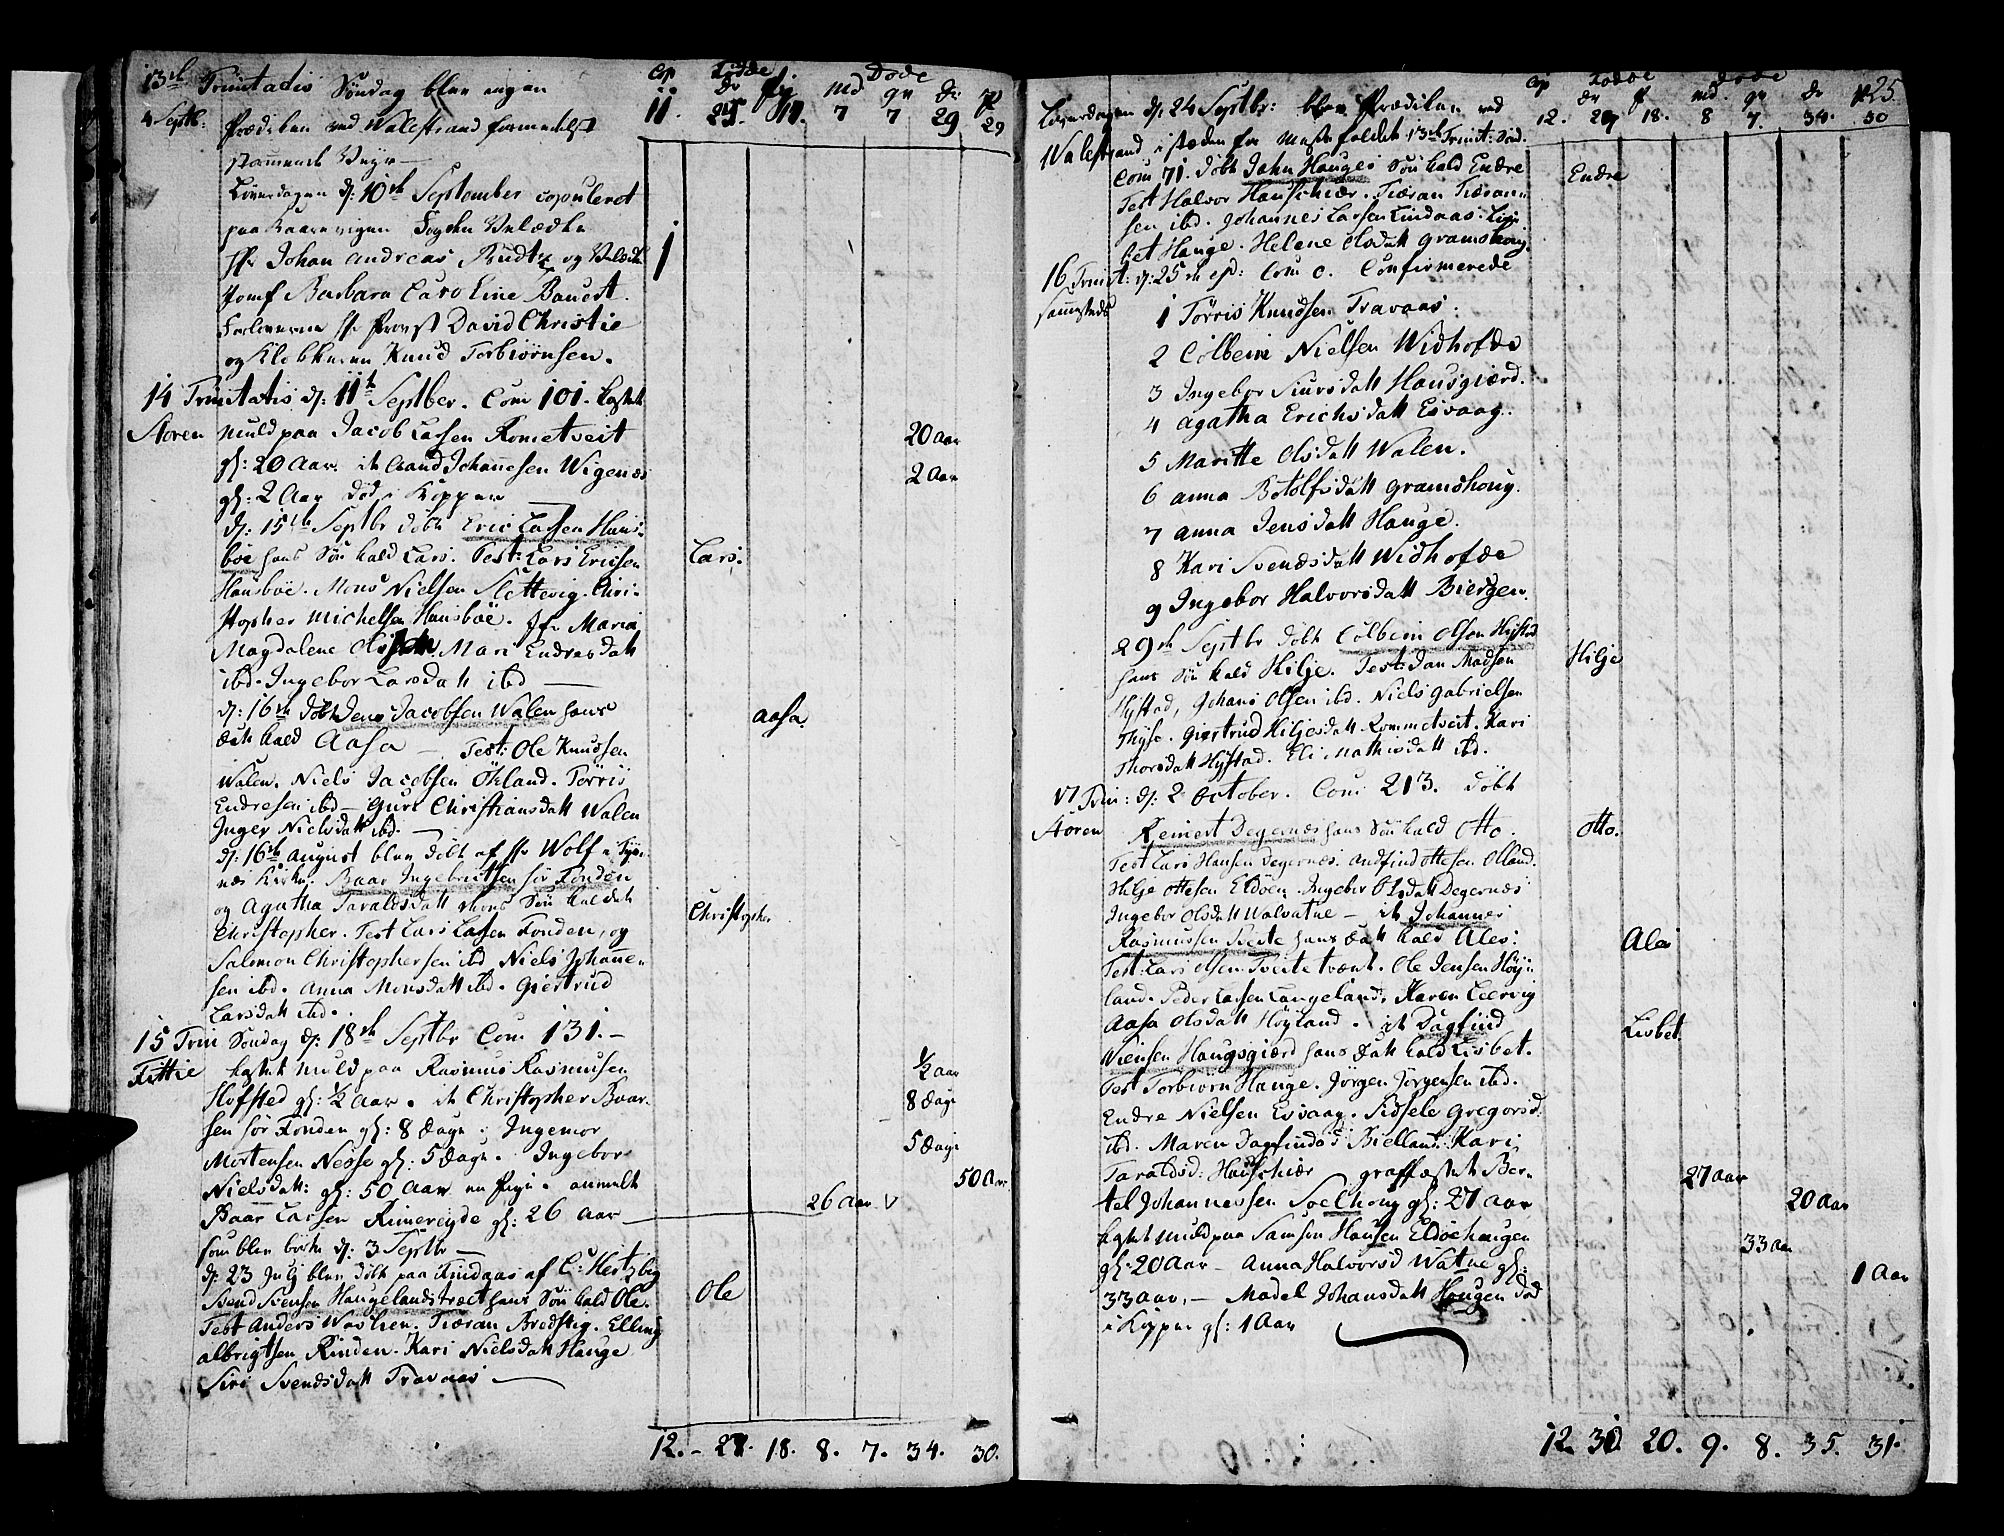 13de Trinitatis Søndag blev ingen
4 Septb: Prædiken ved Walestrand formedelst
stormende Veyr
Løverdagen d: 10de September copuleret
paa Kaarevigen Fogden Velædle
Hr Johan Andreas Budtz og Velædle
Jomf Barbara Caroline Bauert.
Forloverne Hr Provst David Christie
og Klokkeren Knud Torbiörnsen.
14 Trinitatis d: 11te Septber. Com 101. kastet
Storen Muld paa Jacob Larsen Rometveit
gl: 20 Aar. it Johannesen Wigenæs
gl: 2 Aar död i Kopper
d: 15de Septbr döbt Eric Larsen Huus-
böe hans Sön kald Lars. Test: Lars Ericsen
Huusböe. Mons Nielsen Slettevig. Chri-
stopher Michelsen Huusböe. Jfr Maria
Magdalene Mari Endresdatt
ibd. Ingebor Larsdatt ibd
d: 16de döbt Jens Jacobsen Walen hans
Datt kald Aasa — Test: Ole Knudsen
Walen. Niels Jacobsen Ökland. Törris
Endresen ibd — Guri Christiansdatt Walen
Inger Nielsdatt ibd.
d: 16de August blev döbt af Hr Wolf i Tys-
næs Kirke. Baar Ingebrictsen Sör Fonden
og Agatha Taraldsdatt Sön kaldet
Christopher. Test Lars Larsen Fonden, og
Salomon Christophersen ibd Niels Johanne-
sen ibd. Anna Monsdatt ibd. Giertrud
Larsdatt ibd.
15 Trin Søndag d: 18de Septbr Com 131.
Fittie kastet Muld paa Rasmus Rasmusen
Hofsted gl: ½ Aar. it Christopher Baar-
sen Sör Fonden gl: 8 Dage. Ingemor
Mortensen Nesse gl: 5 Dage. Ingebor
Nielsdatt: gl: 50 Aar en Pige. anmelt
Baar Larsen Rimereyde gl: 26 Aar
som blev döde d: 3 Septbr
d: 23 July blev döbt paa Lindaas af C: Hertzbg
Svend Svensen Haugelandstræet hans Sön kald Ole.
Test Anders Wavken. Tieran Bredsteg. Elling
Albrigtsen Rinden. Kari Nielsdatt Hauge
Siri Svendsdatt Travaas
Cop Födde Döde
Dr Pig Md Qv Dr P
11. 25. 17. 7 7 29 29
1
20 Aar
2 Aar
Lars.
Aasa.
Christopher
½ Aar
8 Dage
5 Dage
50 Aar
26 Aar V
Ole
12. 27. 18. 8. 7. 34. 30.
Løverdagen d: 24 Septbr: blev Prædiken ved
Walestrand i stæden for Messefaldet 13de Trinit: Sönd.
Com 71. Döbt John Hauges Sön kald Endre
Test Halvor Hauschier. Tieran Tieran-
sen ibd. Johannes Larsen Lindaas. Lis-
bet Hauge. Helene Olsdatt Gramshoug.
16 Trinit: d: 25de ejd: Com 0. Confirmerede
samesteds
1 Törris Knudsen Travaas.
2 Colbein Nielsen Widhofde
3 Ingebor Siursdatt Hausgierd.
4 Agatha Erichsdatt Esvaag.
5 Maritte Olsdatt Walen.
6 Anna Botolfsdatt Gramshoug.
7 Anna Jensdatt Hauge.
8 Kari Svendsdatt Widhofde
9 Ingebor Halvorsdatt Biergen.
29de Septbr döbt Colbein Olsen Hystad
hans Sön kald Hilje. Test: Jan Madsen
Hystad, Johans Olsen ibd. Niels Gabrielsen
Thyse. Giertrud Hiljesdatt Rommetveit. Kari
Thorsdatt Hystad. Eli Mathisdatt ibd.
17 Trin: d: 2 October. Com 213. döbt
Storen Reinert Degernæs hans Sön kald Otto.
Test Lars Hansen Degernæs. Andfind Ottesen Olland.
Hilje Ottesen Eldöen. Ingebor Olsdatt Degernæs
Ingebor Olsdatt Walvatne — it Johannes
Rasmussen Tveite hans Datt kald Ales:
Test: Lars Olsen Tveitetvedt. Ole Jensen Höy-
land. Peder Larsen Langeland, Karen Leervig
Aasa Olsdatt Höyland. it Dagfind
Siensen Haugsgierd hans Datt kald Lisbet.
Test Torbiörn Hauge. Jörgen Jörgensen ibd.
Endre Nielsen Esvaag. Sidsele Gregorisd.
ibd. Maren Dagfindsd Bielland. Kari
Taraldsd: Hauschier graffæstet Ber-
tel Johannessen Soelhoug gl: 27 Aar
kastet Muld paa Samson Hansen Eldöehaugen
gl: 20 Aar — Anna Halvorsd Watne gl:
33 Aar, — Madel Johansdatt Haugen död
i Kopper gl: 1 Aar
Cop Födde Döde 25.
Dr P Md. Qv Dr P
12. 27 18. 8 7. 34. 30
Endre
Hilje
Otto.
Ales
Lisbet
27 Aar
20 Aar
33 Aar
1 Aar
12. 30. 20. 9. 8. 35. 31.